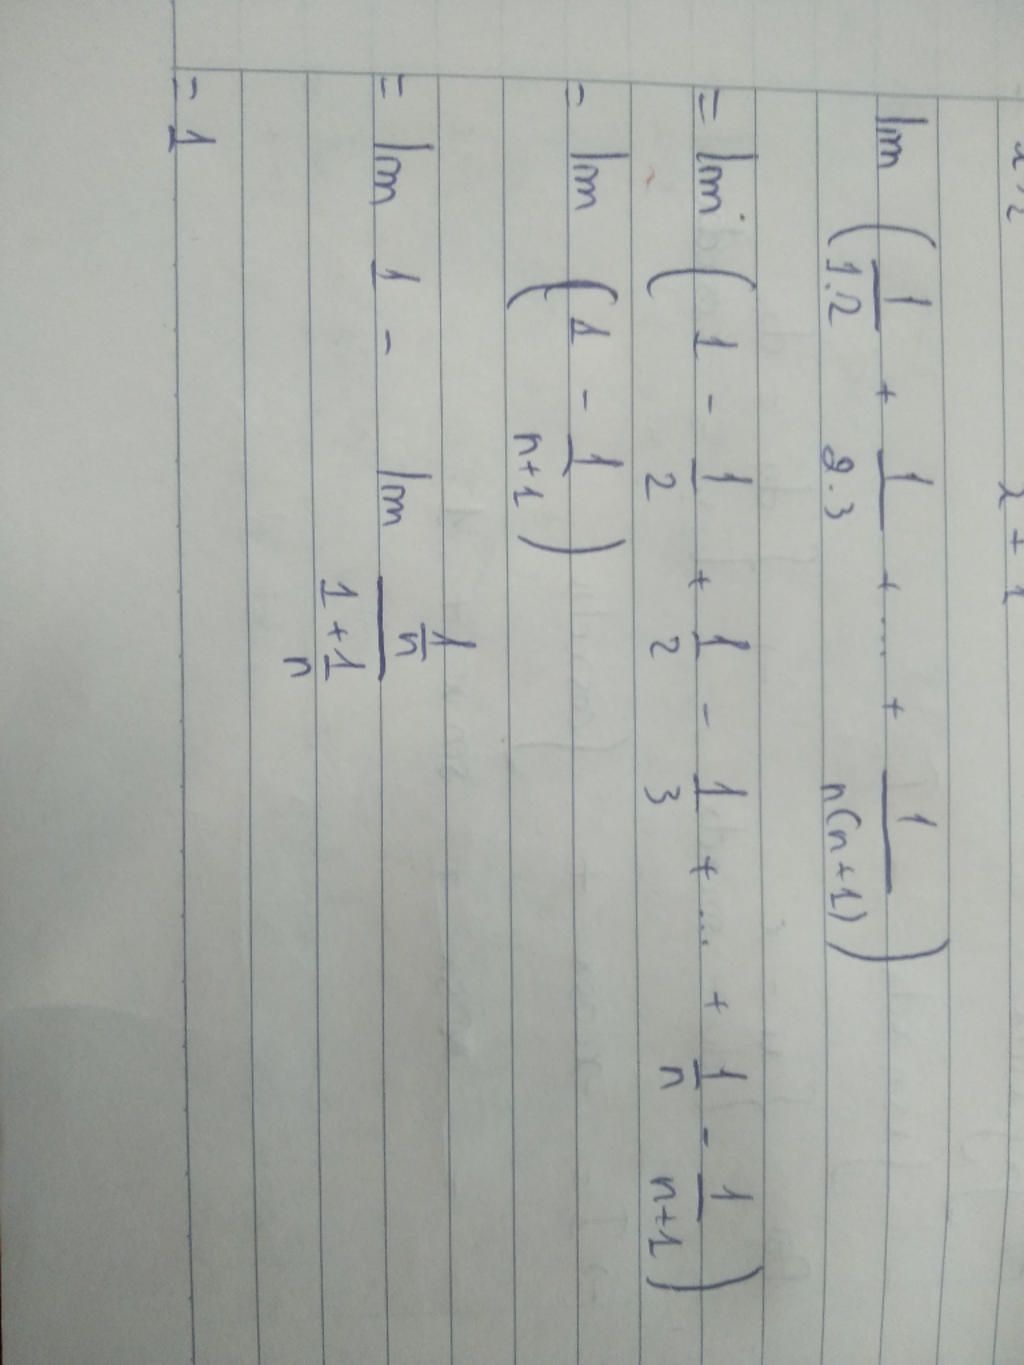 lim ( 1/1.2 + 1/2.3 + .... + 1/n(n+1) )
= lim ( 1 - 1/2 + 1/2 - 1/3 + ... + 1/n - 1/n+1 )
= lim ( 1 - 1/n+1 )
= lim 1 - lim (1/n)/(1+1/n)
= 1